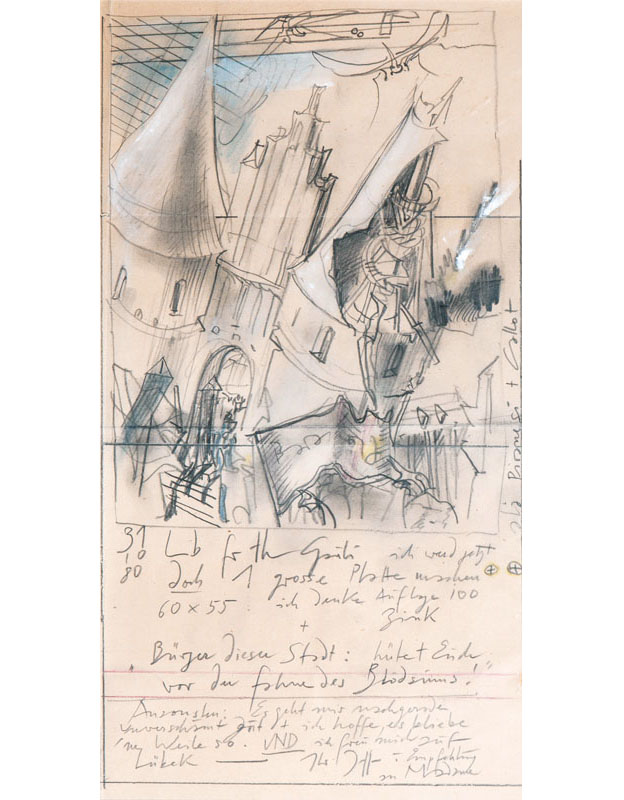 31 ich werd jetzt
10
80 doch 1 grosse Platte machen
60 x 55 ich denke Auflage 100
+ Zink
"Bürger dieser Stadt: hütet Euch
vor der Fahne des Blödsinns!"
Ansonsten: Es geht mir nachgerade
unverschämt gut + ich hoffe, es bliebe
'ne Weile so. UND ich freu mich auf
Lübeck — Ihr : Empfehlung
an Madame
+ Callot